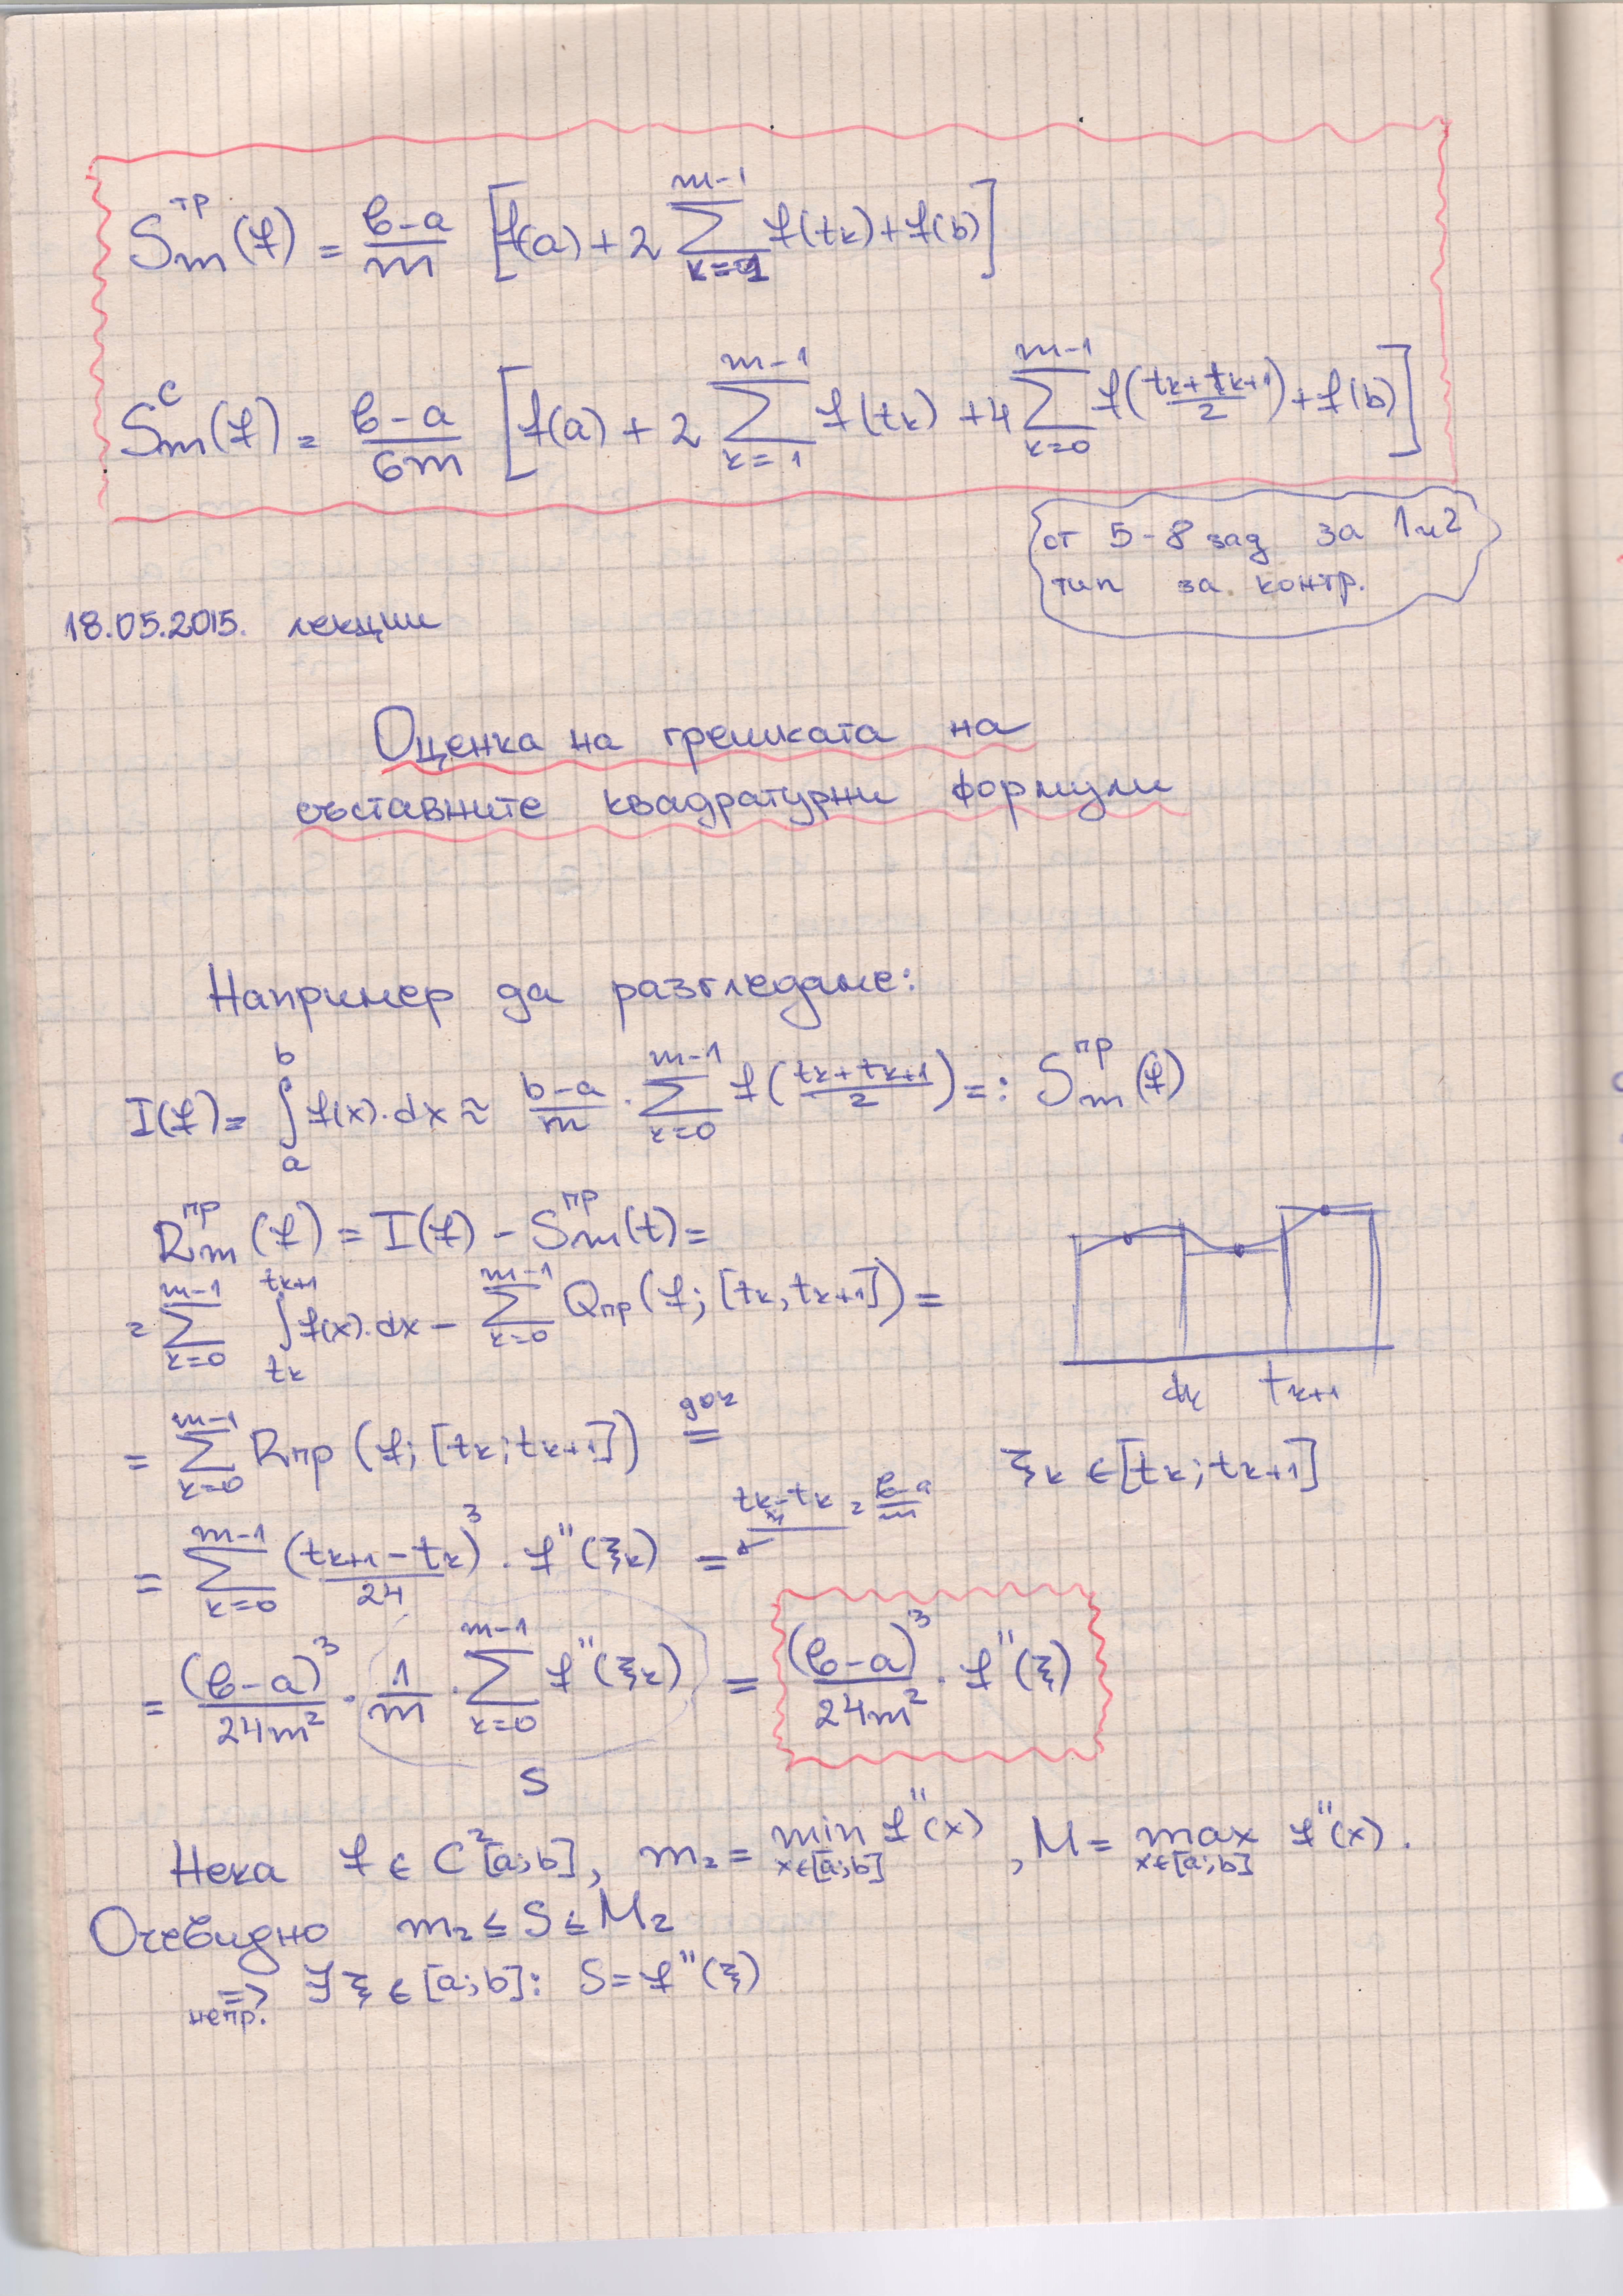 S_m^тр(f) = (b-a)/m [f(a) + 2 ∑_{k=1}^{m-1} f(t_k) + f(b)]
S_m^c(f) = (b-a)/6m [f(a) + 2 ∑_{k=1}^{m-1} f(t_k) + 4 ∑_{k=0}^{m-1} f((t_k+t_{k+1})/2) + f(b)]
от 5-8 зад за 1 и 2
тип за контр.
18.05.2015. лекции
Оценка на грешката на
съставните квадратурни формули
Например да разгледаме:
I(f) = ∫_a^b f(x).dx ≈ (b-a)/m . ∑_{k=0}^{m-1} f((t_k+t_{k+1})/2) =: S_m^пр(f)
R_m^пр(f) = I(f) - S_m^пр(t) =
= ∑_{k=0}^{m-1} ∫_{t_k}^{t_{k+1}} f(x).dx - ∑_{k=0}^{m-1} Q_пр(f; [t_k, t_{k+1}]) =
t_{k+1}
= ∑_{k=0}^{m-1} R_пр(f; [t_k; t_{k+1}]) =
ξ_k ∈ [t_k; t_{k+1}]
= ∑_{k=0}^{m-1} (t_{k+1} - t_k)^3/24 . f''(ξ_k) =
= (b-a)^3/24m^2 . 1/m . ∑_{k=0}^{m-1} f''(ξ_k) = (b-a)^3/24m^2 . f''(ξ)
S
Нека f ∈ C^2[a;b], m_2 = min_{x∈[a;b]} f''(x), M = max_{x∈[a;b]} f''(x).
Очевидно m_2 ≤ S ≤ M_2
⇒ непр. ∃ ξ ∈ [a;b]: S = f''(ξ)